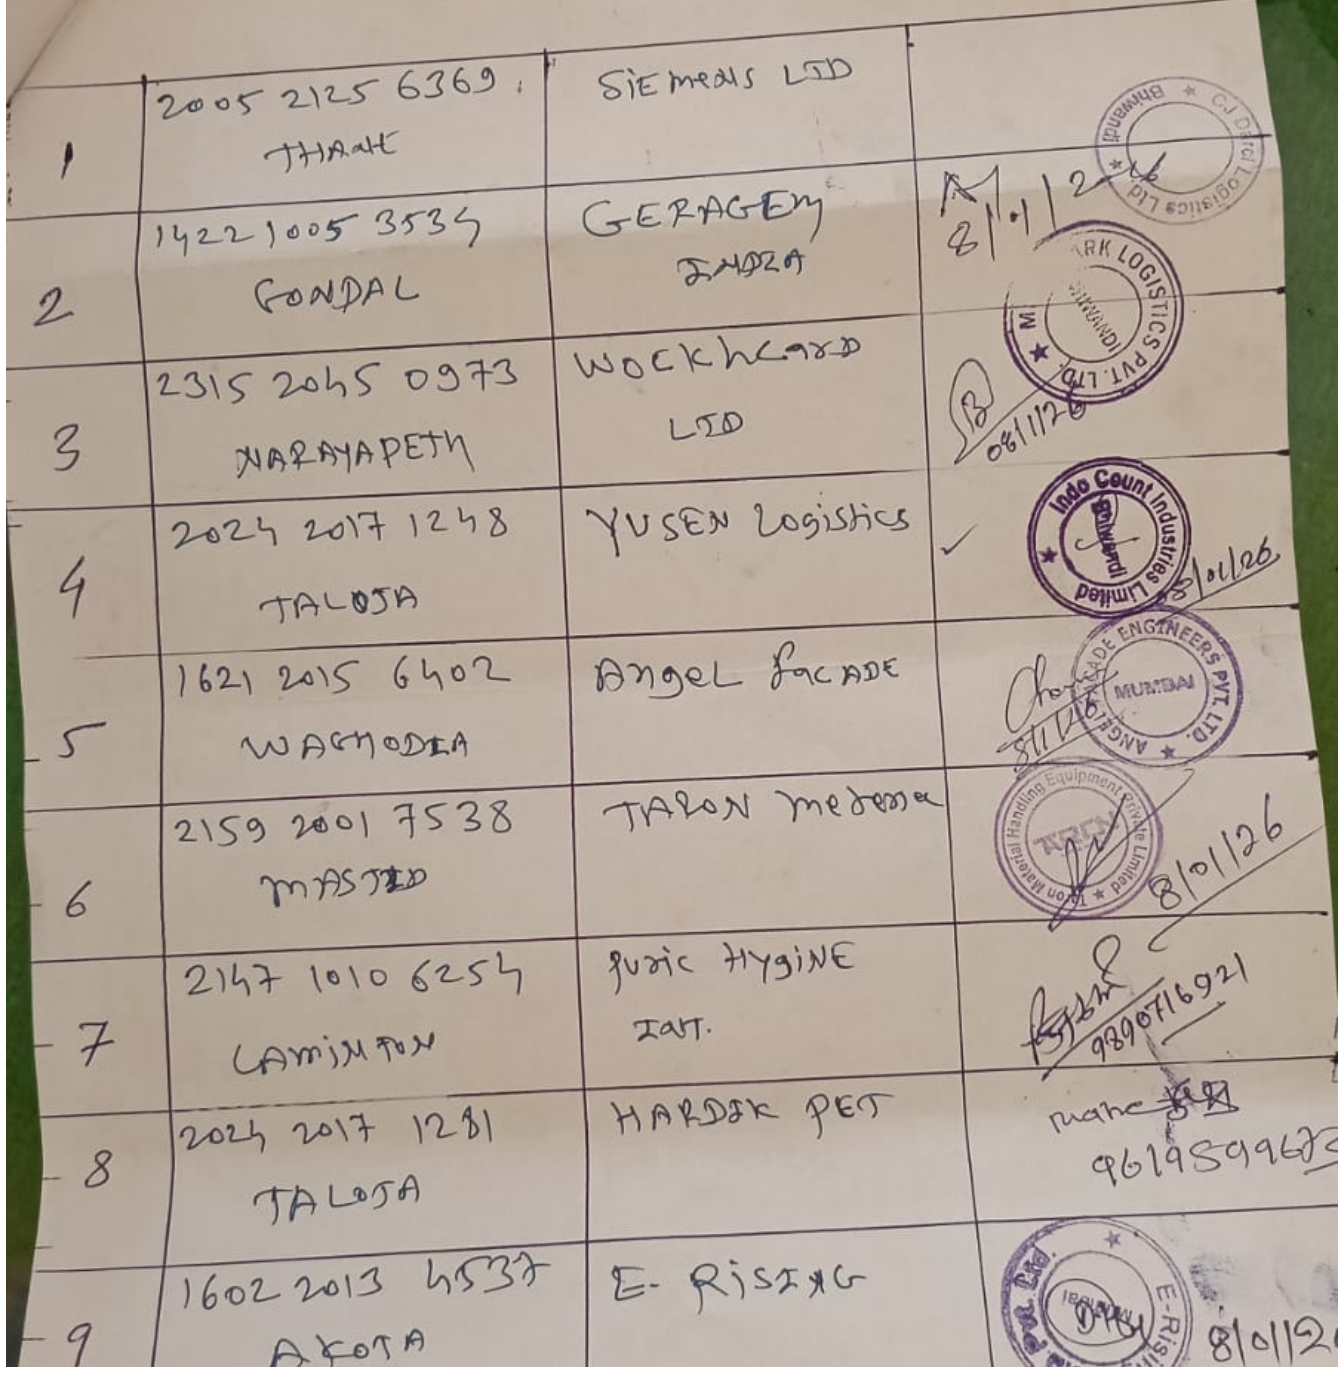 1
2005 2125 6369
THANE
SiEmens LTD
CJ Darcl Logistics Ltd. ★ Bhiwandi ★
2
1422 1005 3534
GONDAL
GERAGEM
INDIA
8/01/26
ARK LOGISTICS PVT. LTD. ★
BHIWANDI
3
2315 2045 0973
NARAYAPETH
WOCKhCarD
LTD
08/1/26
4
2024 2017 1248
TALOJA
YUSEN Logistics
Indo Count Industries Limited ★
Bhiwandi
8/01/26
5
1621 2015 6402
WAGHODIA
Angel facADE
ANGEL FACADE ENGINEERS PVT. LTD. ★
MUMBAI
8/1/26
6
2159 2001 7538
MASJID
TARON
Taron Material Handling Equipment Private Limited ★
8/01/26
7
2147 1010 6254
LAMINTON
puric HYgiNE
Int.
9890716921
8
2024 2017 1281
TALOJA
HARDIK PET
9619599673
9
1602 2013 4537
AKOTA
E- RiSING
E-Rising Pvt. Ltd. ★
Mumbai
8/01/2